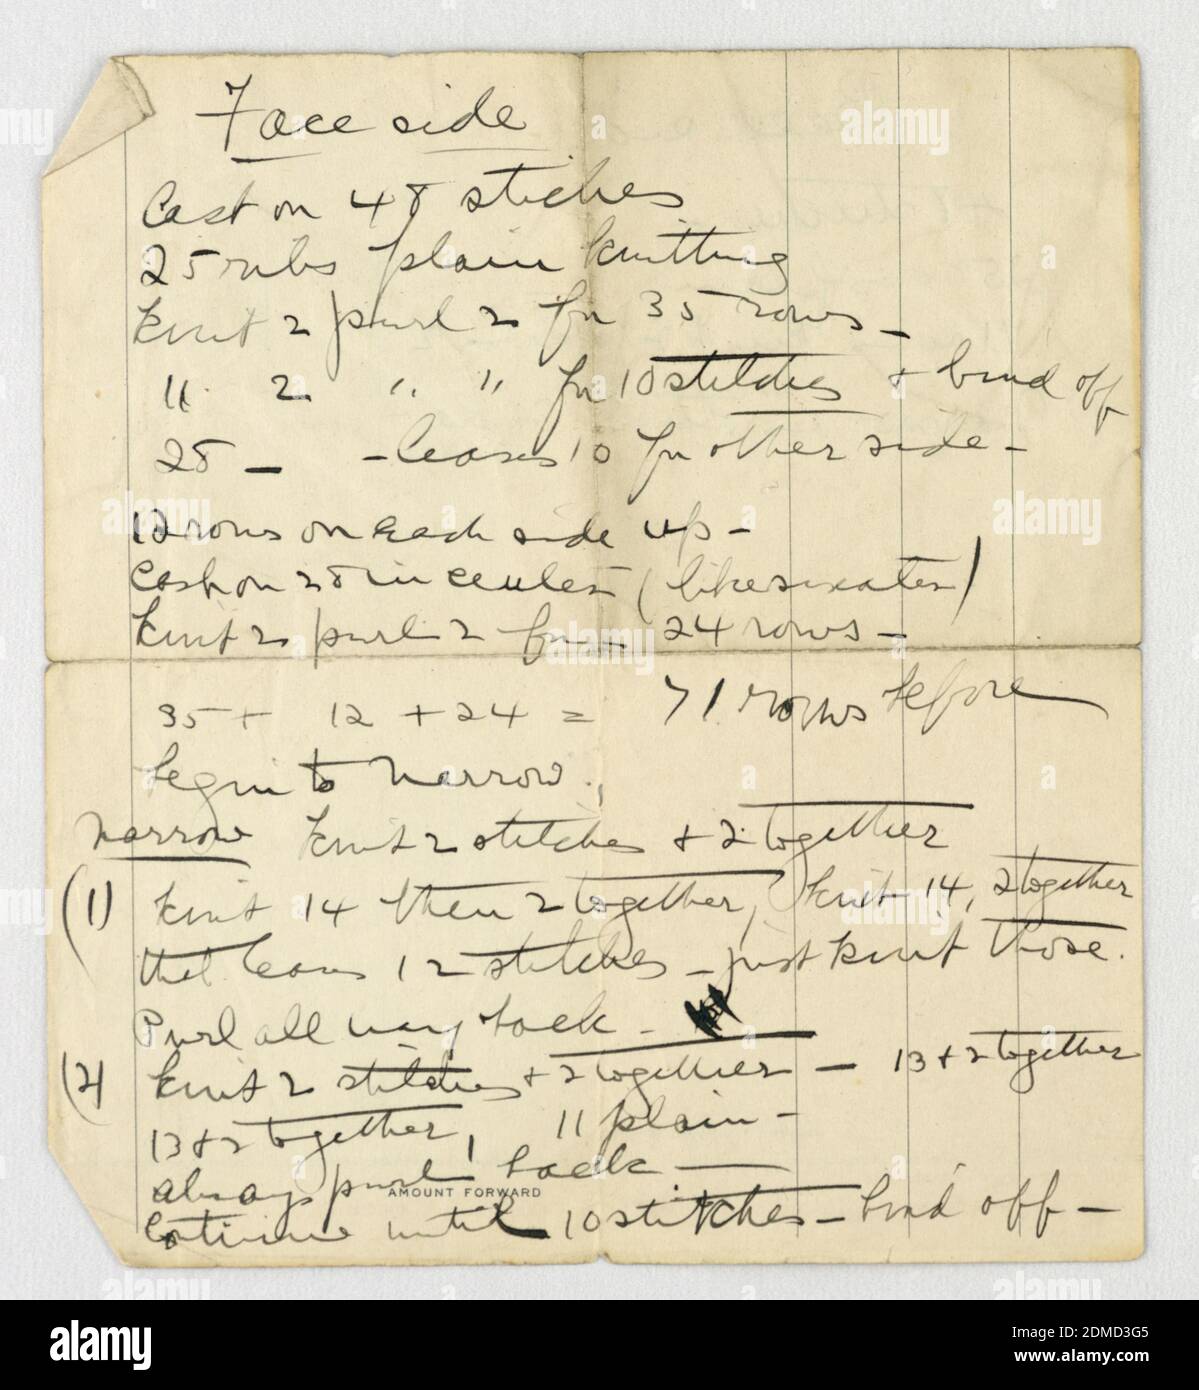 Face side
Cast on 48 stiches
25 ribs plain knitting
Knit 2 purl 2 for 35 rows -
" 2 " " for 10 stitches + bind off
28 - - leaves 10 for other side -
12 rows on each side up -
Cast on 28 in center ( )
Knit 2 purl 2 for - 24 rows -
35 + 12 + 24 = 71 rows before
begin to narrow.
Narrow Knit 2 stitches + 2 together
(1) Knit 14 then 2 together, Knit 14, 2 together
that leaves 12 stitches - just knit those.
Purl all way back -
(2) Knit 2 stitches + 2 together - 13 + 2 together
13 + 2 together, 11 plain -
always purl back -
AMOUNT FORWARD
Continue until 10 stitches - bind off -
alamy
Image ID: 2DMD3G5
www.alamy.com